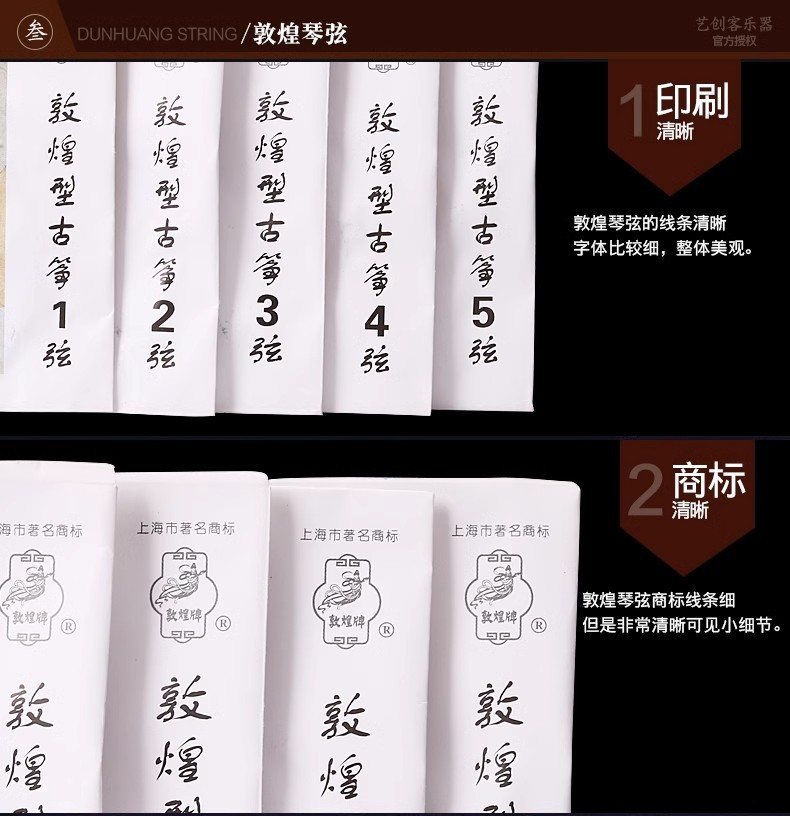 叁 DUNHUANG STRING/敦煌琴弦
艺创客乐器
官方授权
敦煌型古筝1弦
敦煌型古筝2弦
敦煌型古筝3弦
敦煌型古筝4弦
敦煌型古筝5弦
1 印刷
清晰
敦煌琴弦的线条清晰
字体比较细，整体美观。
海市著名商标
敦煌牌
®
敦煌
上海市著名商标
敦煌牌
®
敦煌型
上海市著名商标
敦煌牌
®
敦煌
上海市著名商标
敦煌牌
®
敦煌型
2 商标
清晰
敦煌琴弦商标线条细
但是非常清晰可见小细节。